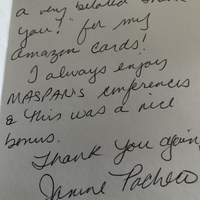 a very belated thank
you!" for my
amazon cards!
I always enjoy
MASPAN's conferences
& this was a nice
bonus.
Thank you again,
Janine Pacheco